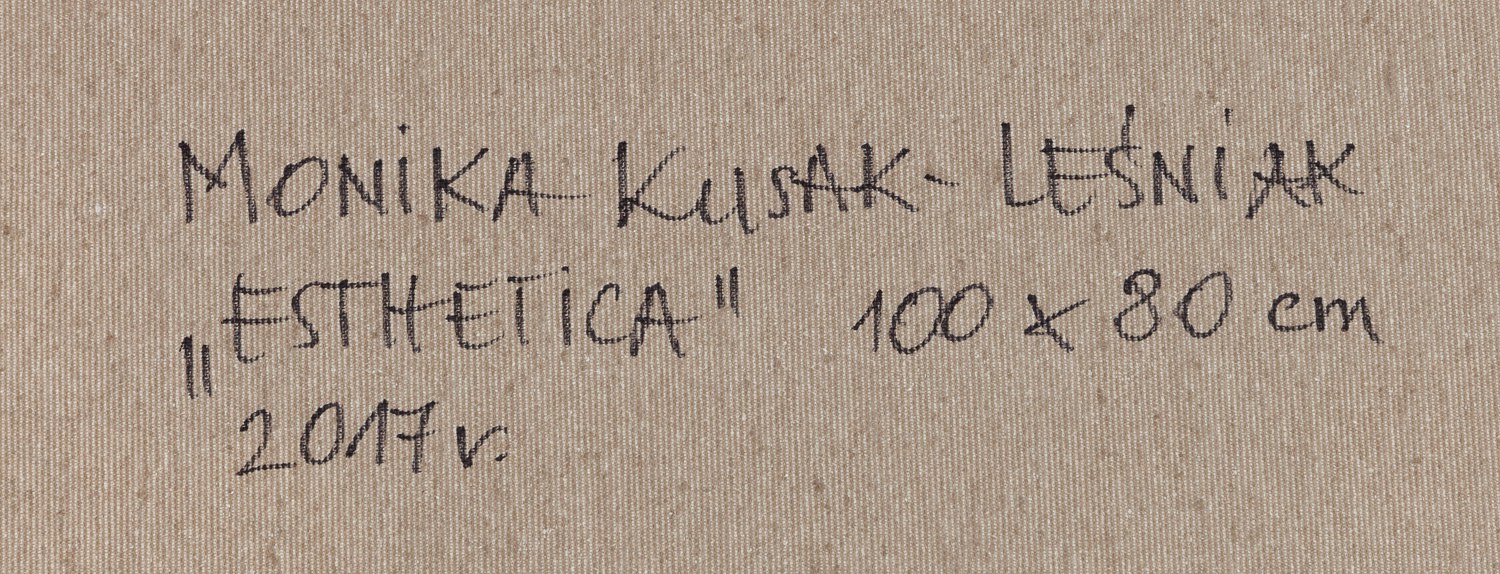 MONiKA KUSAK- LEŚNiAK
„ESTHETiCA" 100 x 80 cm
2017 r.